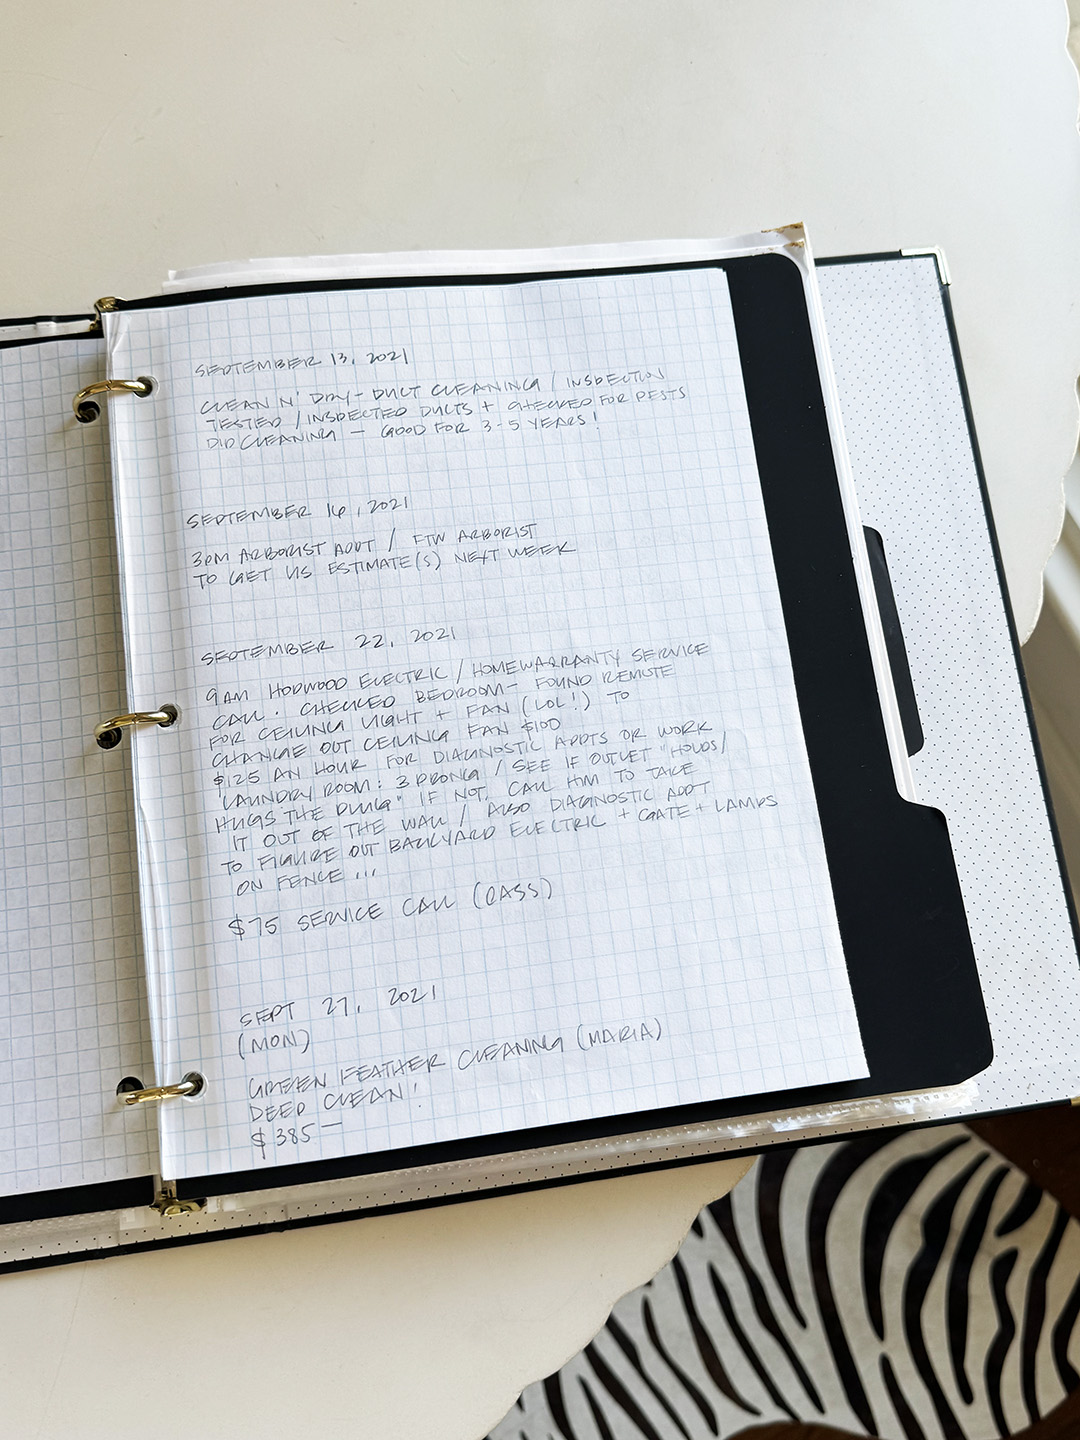 SEPTEMBER 13, 2021
CLEAN N' DRY - DUCT CLEANING / INSPECTION
TESTED / INSPECTED DUCTS + CHECKED FOR PESTS
DID CLEANING — GOOD FOR 3-5 YEARS!
SEPTEMBER 16, 2021
3PM ARBORIST APPT / FTW ARBORIST
TO GET US ESTIMATE(S) NEXT WEEK
SEPTEMBER 22, 2021
9AM HOPWOOD ELECTRIC / HOMEWARRANTY SERVICE
CALL. CHECKED BEDROOM - FOUND REMOTE
FOR CEILING LIGHT + FAN (LOL!) TO
CHANGE OUT CEILING FAN $100
$125 AN HOUR FOR DIAGNOSTIC APPTS OR WORK
"LAUNDRY ROOM: 3 PRONG / SEE IF OUTLET "HOLDS/
HUGS THE PLUG" IF NOT, CALL HIM TO TAKE
IT OUT OF THE WALL / ALSO DIAGNOSTIC APPT
TO FIGURE OUT BACKYARD ELECTRIC + GATE + LAMPS
ON FENCE ...
$75 SERVICE CALL (CASS)
SEPT 27, 2021
(MON)
GREEN FEATHER CLEANING (MARIA)
DEEP CLEAN!
$385 —